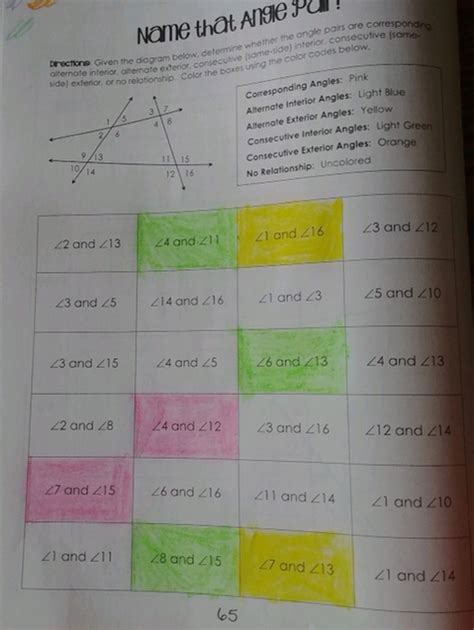 Name that Angle Pair!
Directions: Given the diagram below, determine whether the angle pairs are corresponding,
alternate interior, alternate exterior, consecutive (same-side) interior, consecutive (same-
side) exterior, or no relationship. Color the boxes using the color codes below.
Corresponding Angles: Pink
Alternate Interior Angles: Light Blue
Alternate Exterior Angles: Yellow
Consecutive Interior Angles: Light Green
Consecutive Exterior Angles: Orange
No Relationship: Uncolored
1 5 3 7
2 6 4 8
9 13 11 15
10 14 12 16
∠2 and ∠13 ∠4 and ∠11 ∠1 and ∠16 ∠3 and ∠12
∠3 and ∠5 ∠14 and ∠16 ∠1 and ∠3 ∠5 and ∠10
∠3 and ∠15 ∠4 and ∠5 ∠6 and ∠13 ∠4 and ∠13
∠2 and ∠8 ∠4 and ∠12 ∠3 and ∠16 ∠12 and ∠14
∠7 and ∠15 ∠6 and ∠16 ∠11 and ∠14 ∠1 and ∠10
∠1 and ∠11 ∠8 and ∠15 ∠7 and ∠13 ∠1 and ∠14
65